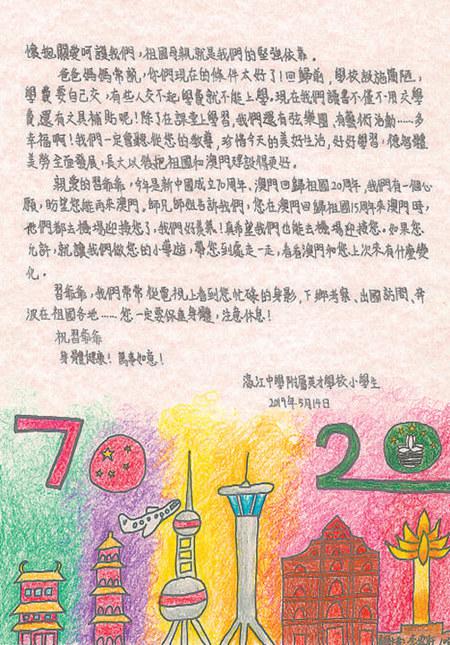 懷抱關愛呵護我們，祖國母親就是我們的堅強依靠。
爸爸媽媽常說，你們現在的條件太好了！回歸前，學校設施簡陋，
學費要自己交，有些人交不起學費就不能上學。現在我們讀書不僅不用交學
費，還有文具補貼呢！除了在課堂上學習，我們還有弦樂團、有藝術活動……多
幸福啊！我們一定會聽從您的教導，珍惜今天的美好生活，好好學習，德智體
美勞全面發展，長大以後把祖國和澳門建設得更好。
親愛的習爺爺，今年是新中國成立70周年、澳門回歸祖國20周年，我們有一個心
願，盼望您能再來澳門。師兄師姐告訴我們，您在澳門回歸祖國15周年來澳門時，
他們都去機場迎接您了，我們好羨慕！真希望我們也能去機場迎接您。如果您
允許，就讓我們做您的小導遊，帶您到處走一走，看看澳門和您上次來有什麼變
化。
習爺爺，我們常常從電視上看到您忙碌的身影，下鄉考察、出國訪問、奔
波在祖國各地……您一定要保重身體，注意休息！
祝習爺爺
身體健康！萬事如意！
濠江中學附屬英才學校小學生
2019年5月14日
70 20